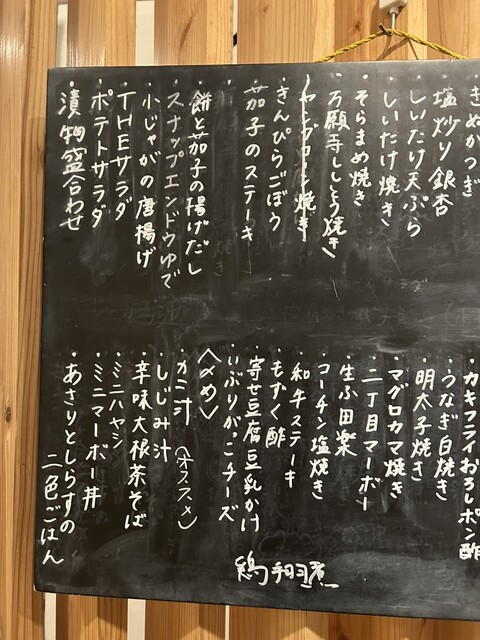 きぬかつぎ
塩炒り銀杏
しいたけ天ぷら
しいたけ焼き
そらまめ焼き
万願寺ししとう焼き
ヤングコーン焼き
きんぴらごぼう
茄子のステーキ
餅と茄子の揚げだし
スナップエンドウゆで
小じゃがの唐揚げ
THEサラダ
ポテトサラダ
漬物盛合わせ
カキフライおろしポン酢
うなぎ白焼き
明太子焼き
マグロカマ焼き
二丁目マーボー
生ふ田楽
コーチン塩焼き
和牛ステーキ
もずく酢
寄せ豆腐豆乳かけ
いぶりがっこチーズ
〈〆め〉
カニ汁(オススメ)
しじみ汁
辛味大根茶そば
ミニハヤシ
ミニマーボー丼
あさりとしらすの
二色ごはん
鶏手羽煮